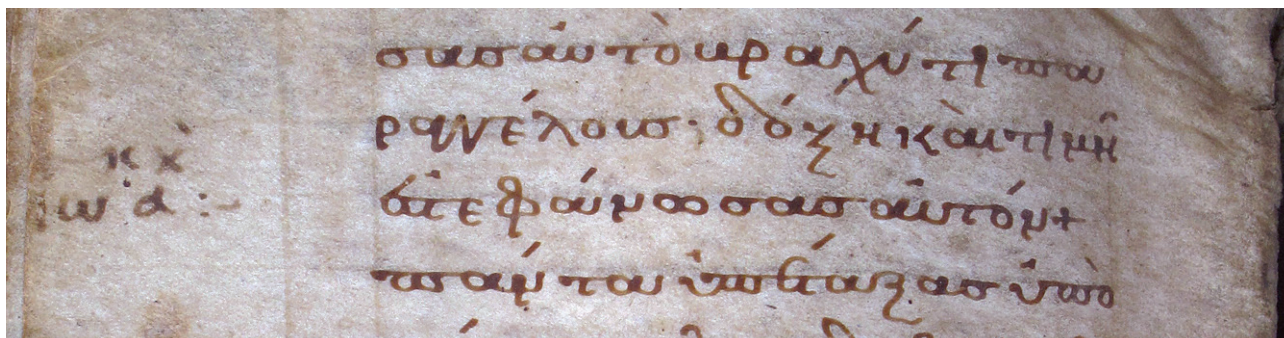 σας αὐτὸν βραχύ τι πα
ρ ἀγγέλους· δόξη καὶ τιμῆ
ἐστεφάνωσας αὐτόν +
πάντα ὑπέταξας ὑπὸ